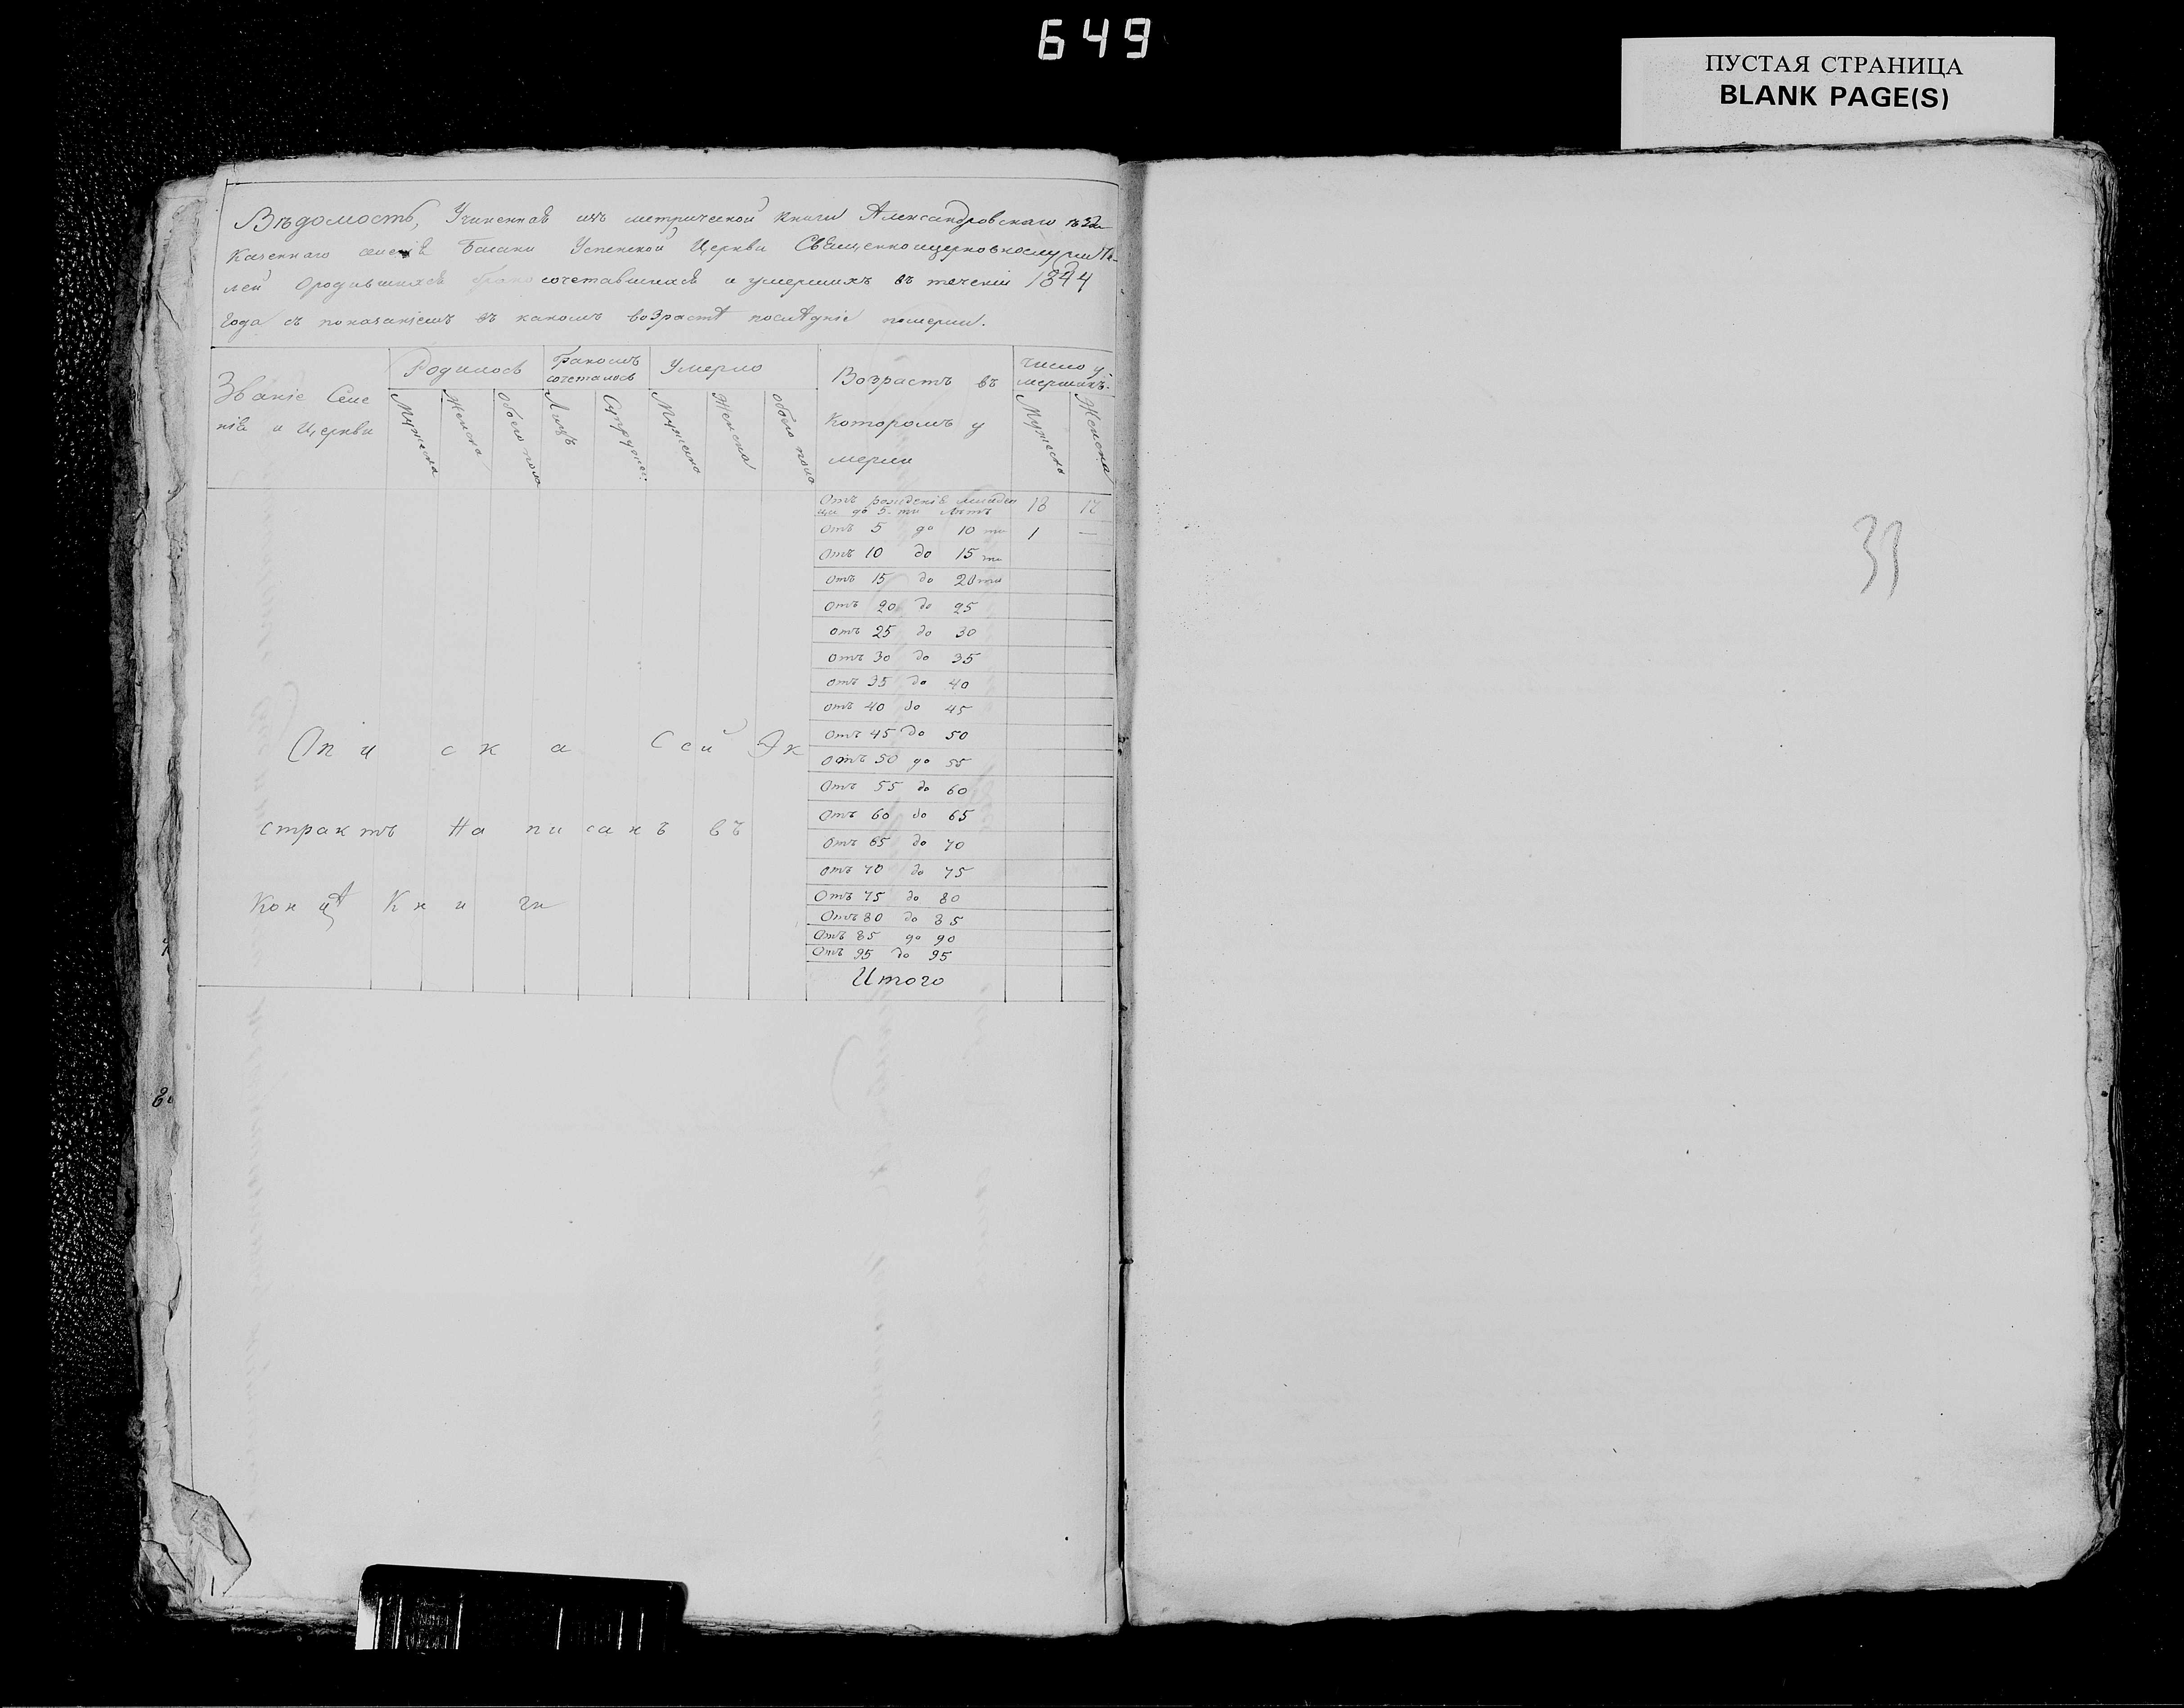 649
ПУСТАЯ СТРАНИЦА
BLANK PAGE(S)
Вѣдомость, Учиненная изъ метрической книги Александровскаго уѣзда
Казеннаго селенія Балаки Успенской Церкви Священноицерковнослужите-
лей ородившихся бракосочетавшихся и умершихъ въ теченіи 1844
года съ показаніемъ въ какомъ возрастѣ послѣдніе померли.
Званіе Селе
нія и Церкви
Родилось
Мужеска
Женска
Обоего пола
Бракомъ
сочеталось
Лицъ
Супружес:
Умерло
Мужеска
Женска
обоего пола
Возрастъ въ
которомъ у
мерли
Число у-
мершихъ.
Мужеска
Женска
Отъ рожденія младен
ца до 5. ти лѣтъ 18 12
Отъ 5 до 10 ти 1 —
Отъ 10 до 15 ти
отъ 15 до 20 ти
отъ 20 до 25
отъ 25 до 30
отъ 30 до 35
отъ 35 до 40
отъ 40 до 45
Отъ 45 до 50
Отъ 50 до 55
Отъ 55 до 60
Отъ 60 до 65
Отъ 65 до 70
отъ 70 до 75
Отъ 75 до 80
Отъ 80 до 85
Отъ 85 до 90
Отъ 95 до 95
Итого
Описка Сей Эк
страктъ Написанъ въ
концѣ Книги
33